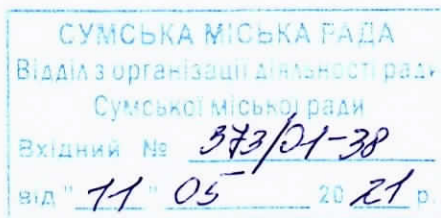 СУМСЬКА МІСЬКА РАДА
Відділ з організації діяльності ради
Сумської міської ради
Вхідний № 373/01-38
від "11" 05 2021 р.